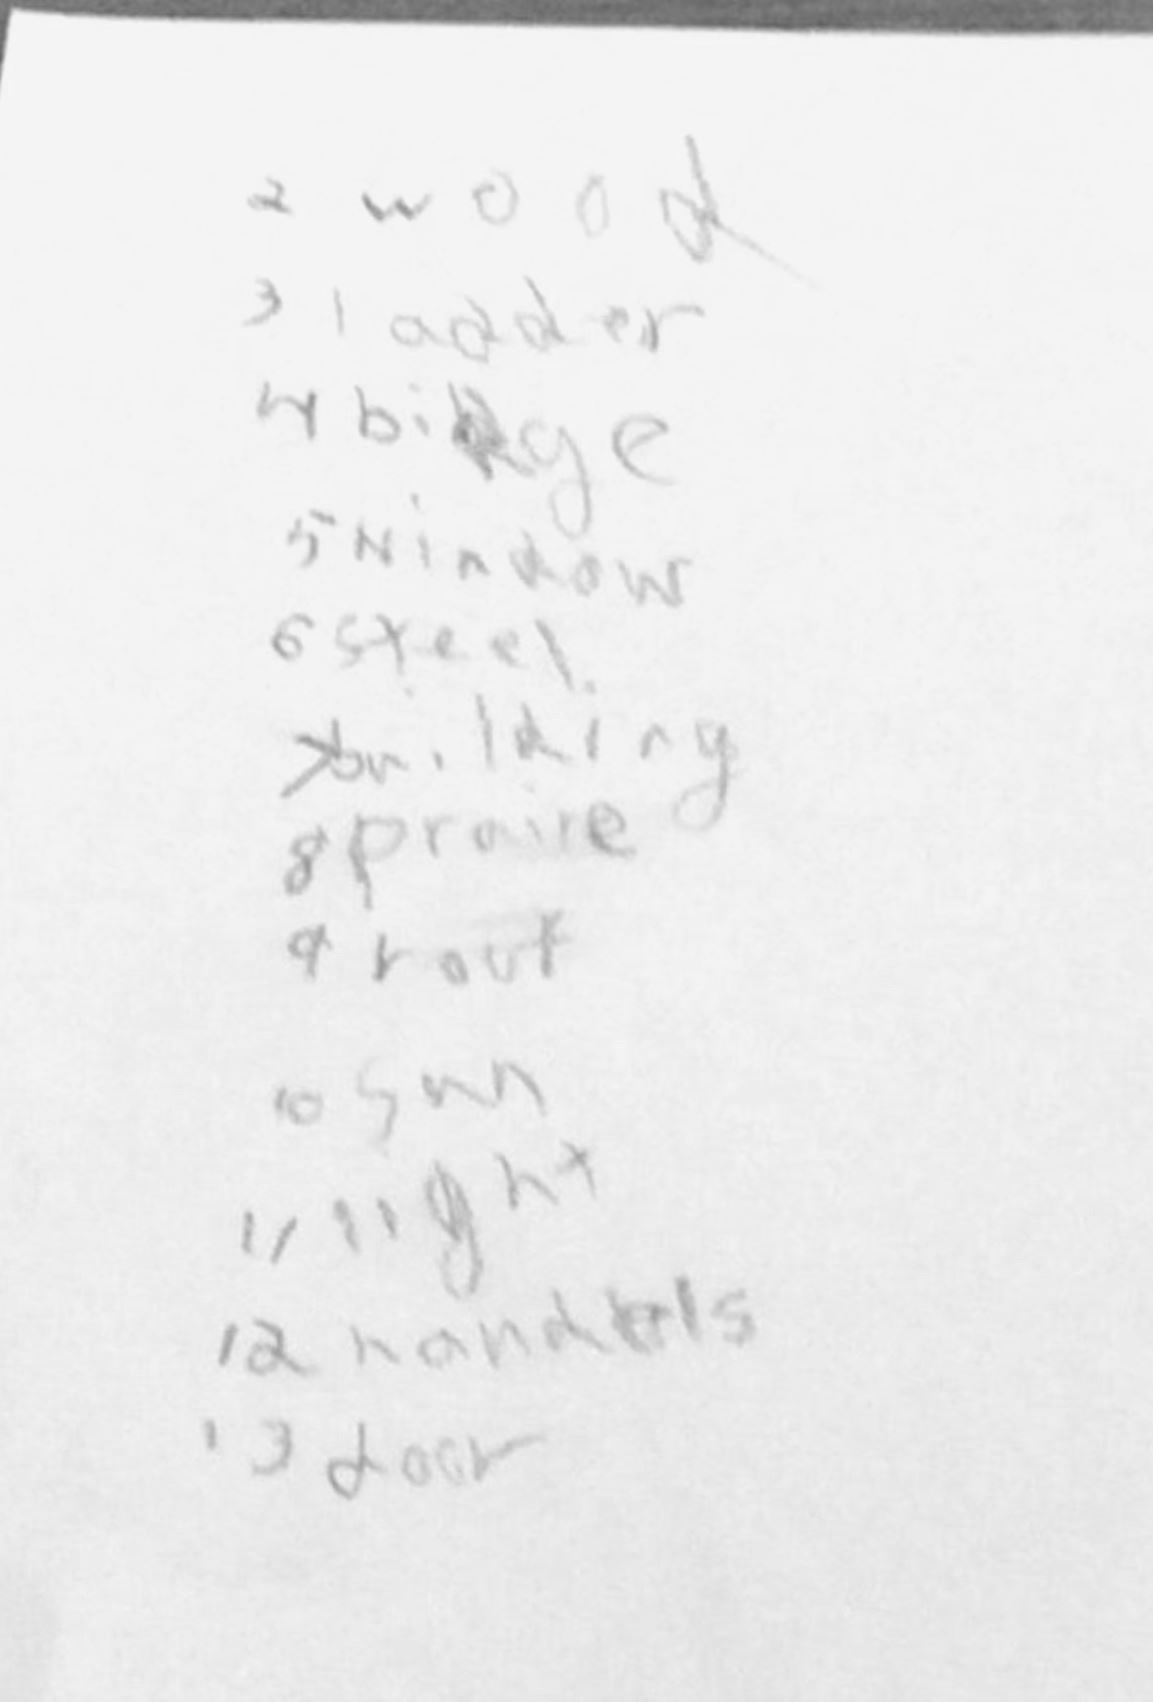 2 wood
3 ladder
4 bidge
5 window
6 steel
7 building
8 praire
9 rout
10 sun
11 light
12 handels
13 door